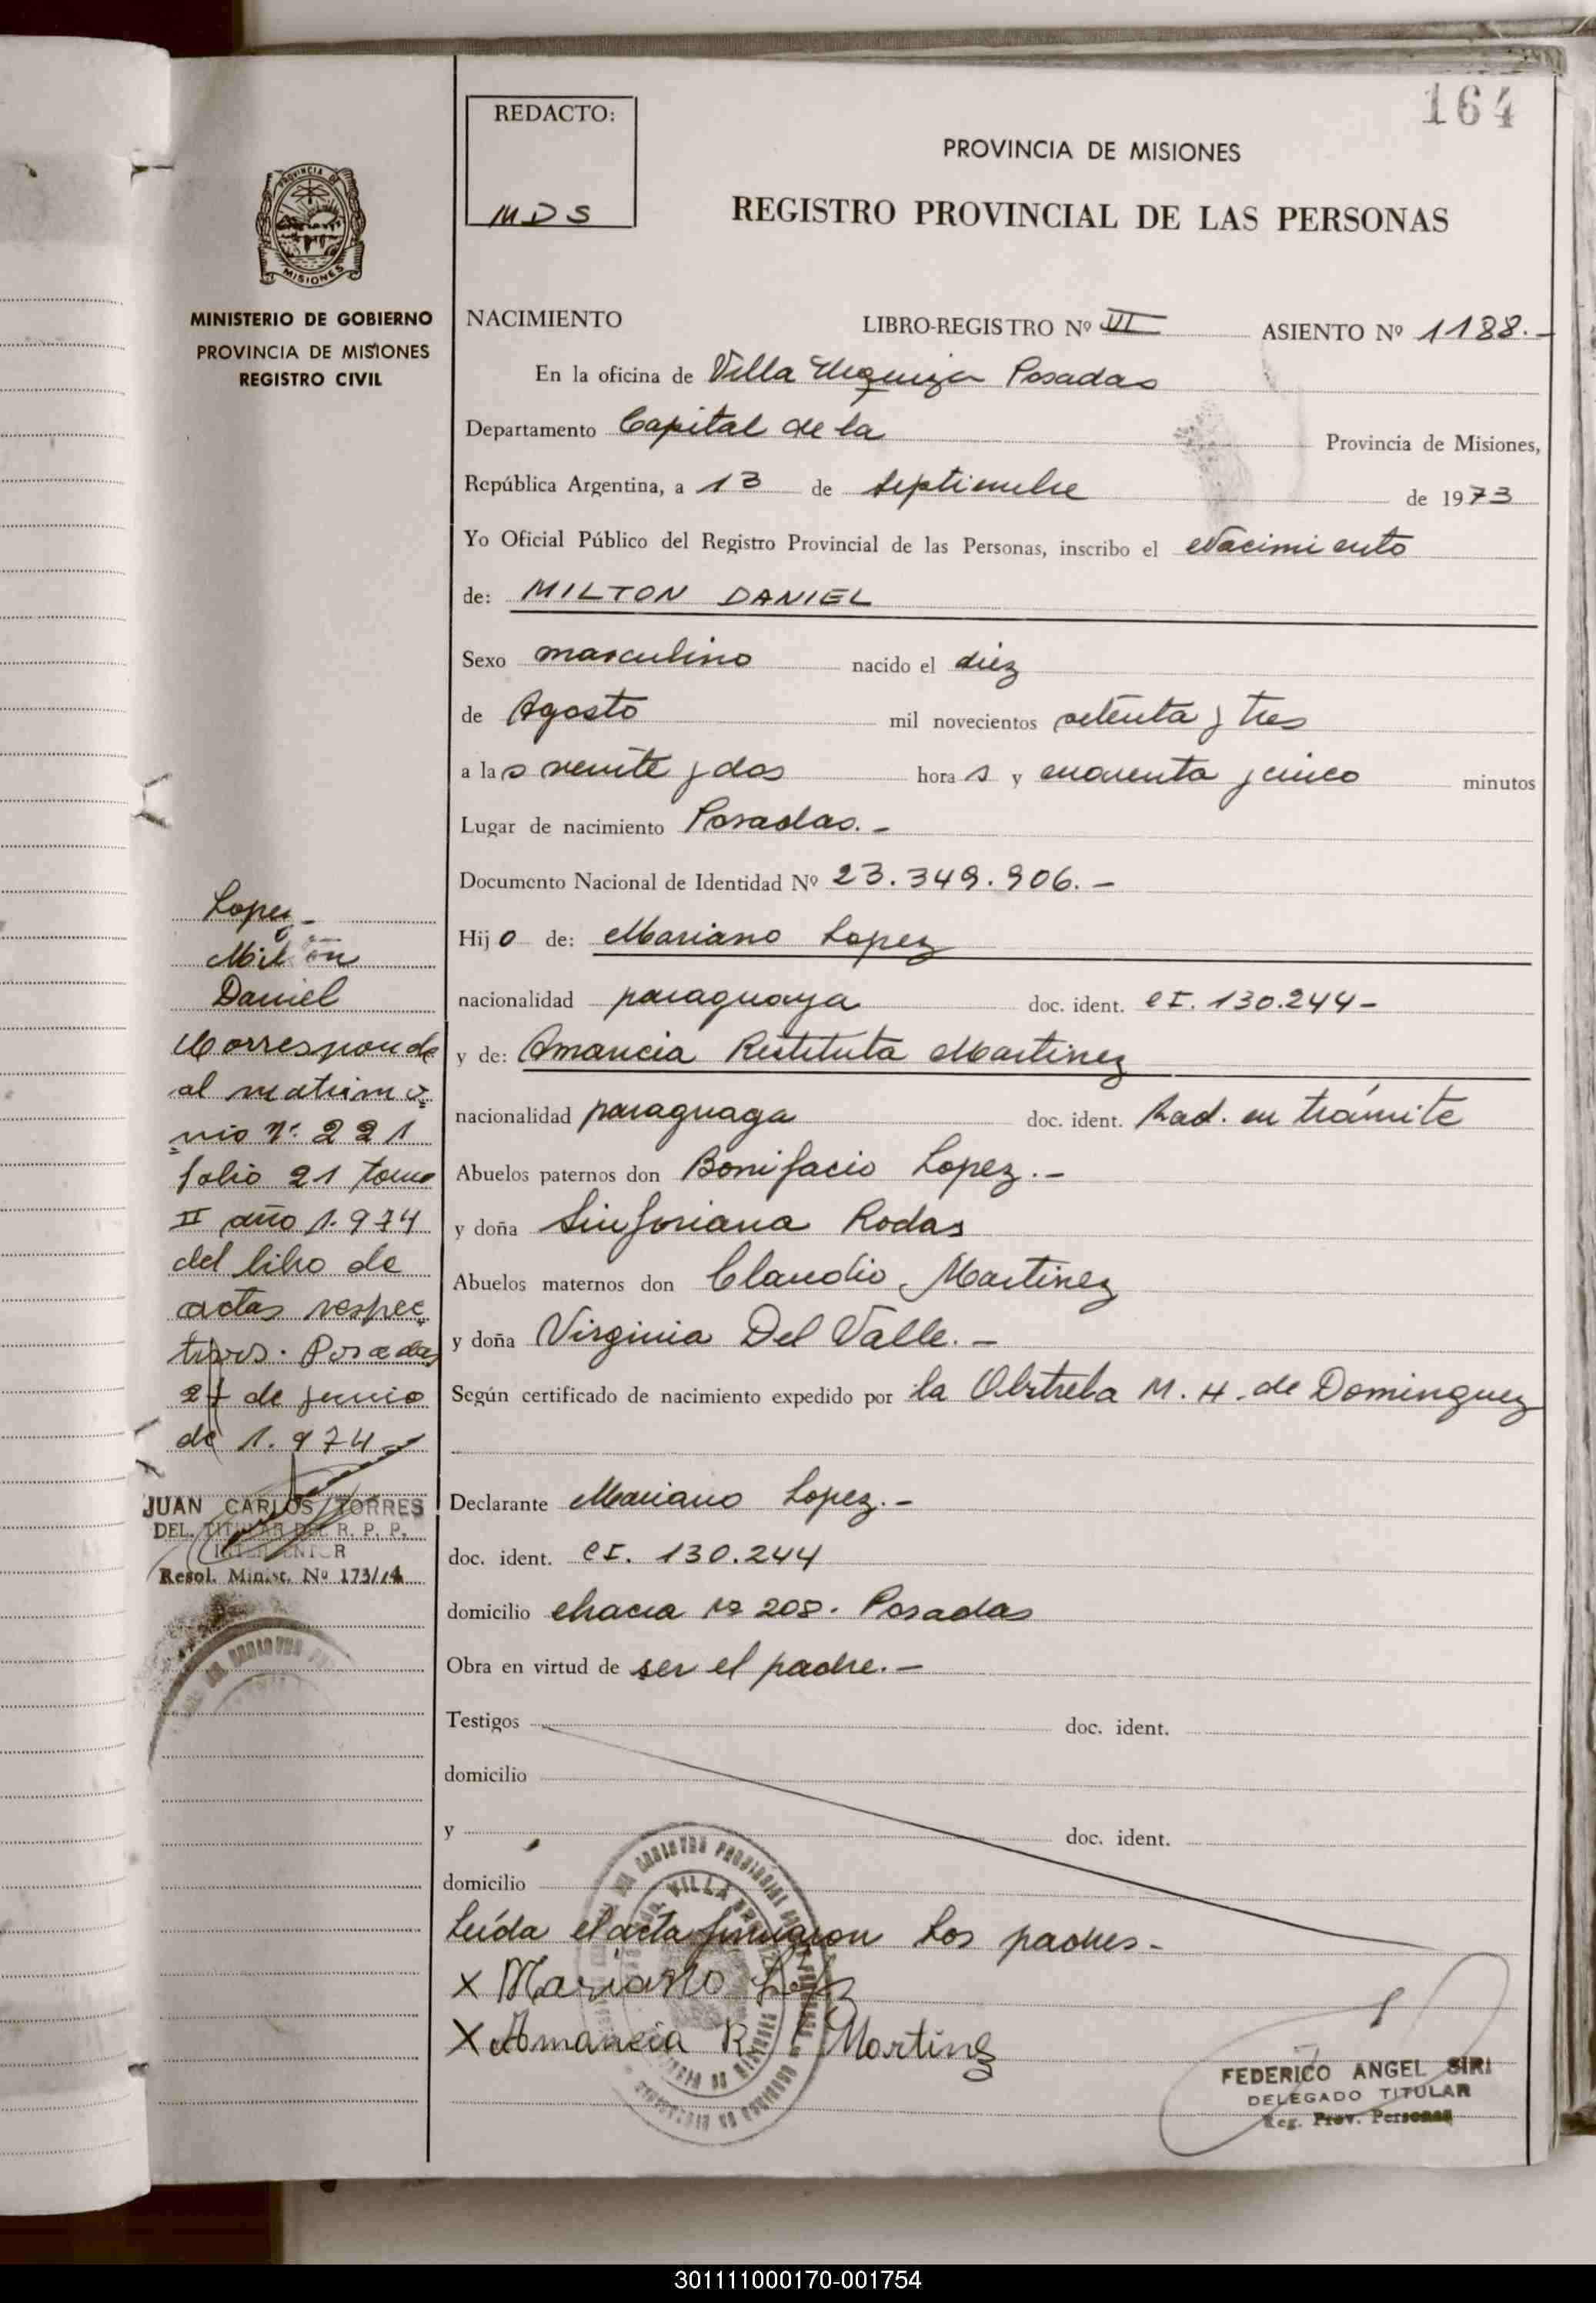 164
REDACTO:
MDS
PROVINCIA DE MISIONES
REGISTRO PROVINCIAL DE LAS PERSONAS
PROVINCIA DE
MISIONES
MINISTERIO DE GOBIERNO
PROVINCIA DE MISIONES
REGISTRO CIVIL
NACIMIENTO LIBRO-REGISTRO Nº VI ASIENTO Nº 1188.-
En la oficina de Villa Urquiza Posadas
Departamento Capital de la Provincia de Misiones,
República Argentina, a 13 de septiembre de 1973
Yo Oficial Público del Registro Provincial de las Personas, inscribo el Nacimiento
de: MILTON DANIEL
Sexo masculino nacido el diez
de Agosto mil novecientos setenta y tres
a las veinte y dos horas y cuarenta y cinco minutos
Lugar de nacimiento Posadas.-
Documento Nacional de Identidad Nº 23.349.906.-
Hijo de: Mariano Lopez
nacionalidad paraguaya doc. ident. CI. 130.244-
y de: Amancia Restituta Martinez
nacionalidad paraguaya doc. ident. Rad. en trámite
Abuelos paternos don Bonifacio Lopez.-
y doña Sinforiana Rodas
Abuelos maternos don Claudio Martinez
y doña Virginia Del Valle.-
Según certificado de nacimiento expedido por la Obstreta M. H. de Dominguez
Declarante Mariano Lopez.-
doc. ident. CI. 130.244
domicilio chacra Nº 208. Posadas
Obra en virtud de ser el padre.-
Testigos doc. ident.
domicilio
y doc. ident.
domicilio
Leída el acta firmaron los padres-
X Mariano
X Amancia R Martinez
FEDERICO ANGEL SIRI
DELEGADO TITULAR
Reg. Prov. Personas
Lopez-
Milton
Daniel
Corresponde
al matrimo
nio Nº 221
folio 21 tomo
II año 1.974
del libro de
actas respec
tivos. Posadas
27 de junio
de 1.974
JUAN CARLOS TORRES
DEL. TITULAR DEL R. P. P.
INTERVENTOR
Resol. Minist. Nº 173/74
301111000170-001754